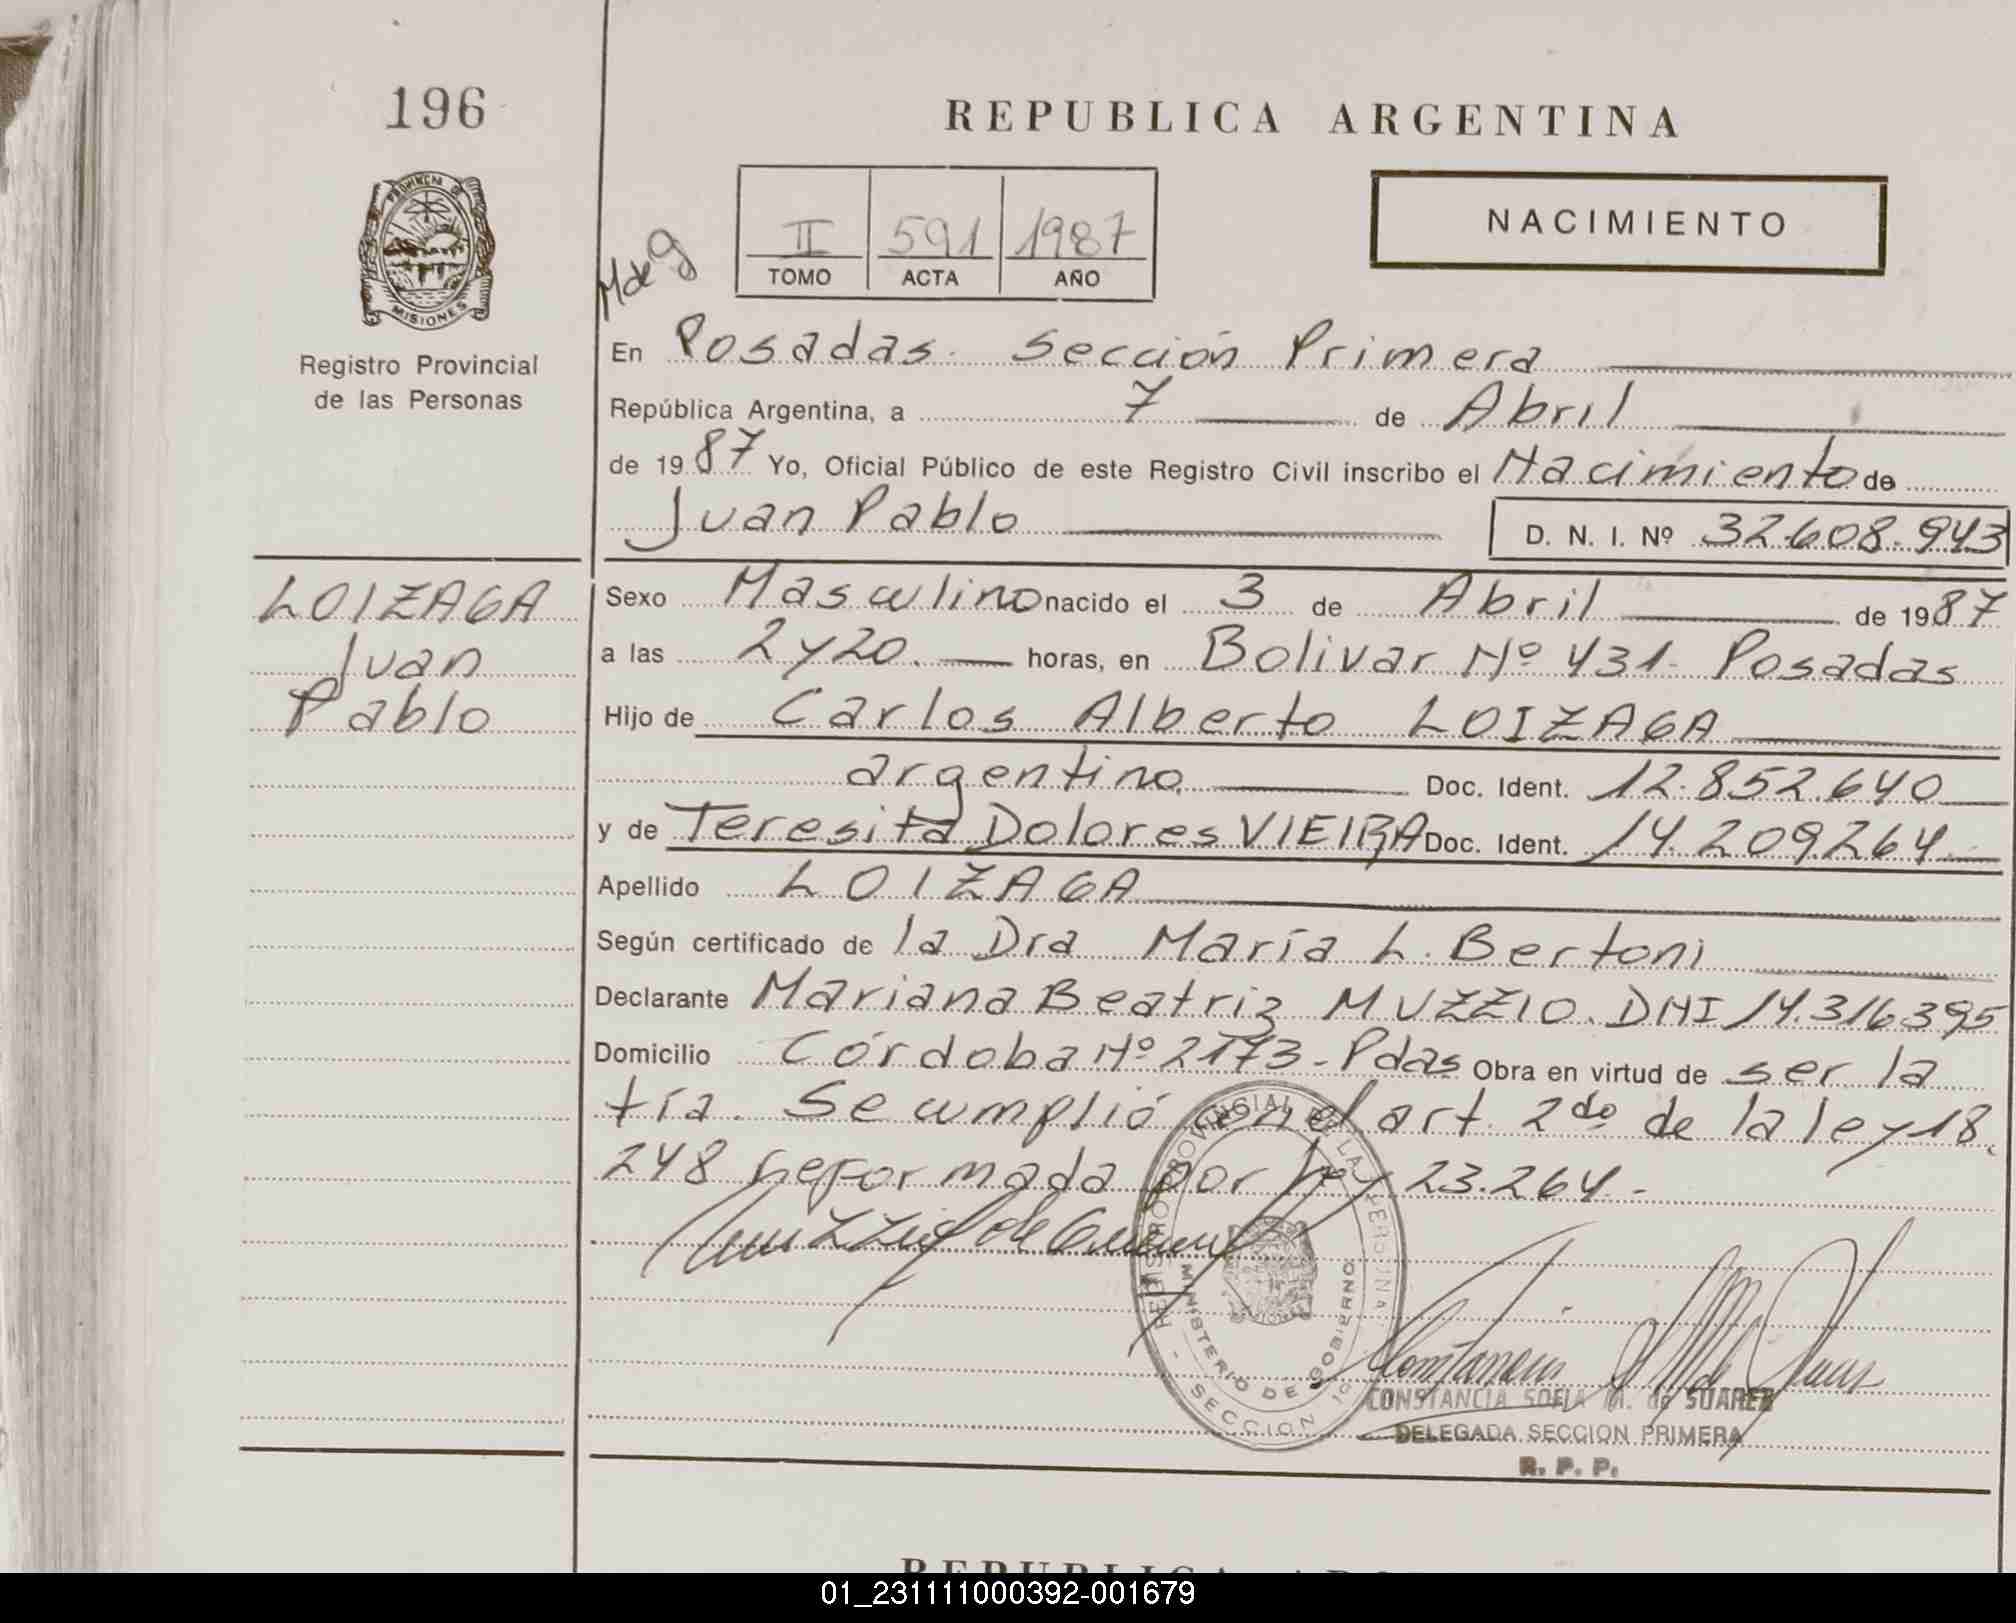 196
REPUBLICA ARGENTINA
PROVINCIA DE
MISIONES
Registro Provincial
de las Personas
M de g
II 591 1987
TOMO ACTA AÑO
NACIMIENTO
En Posadas. Sección Primera
República Argentina, a 7 de Abril
de 1987 Yo, Oficial Público de este Registro Civil inscribo el Nacimiento de
Juan Pablo D. N. I. Nº 32.608.943
LOIZAGA
Juan
Pablo
Sexo Masculino nacido el 3 de Abril de 1987
a las 2 y 20. horas, en Bolivar Nº 431. Posadas
Hijo de Carlos Alberto LOIZAGA
argentino. Doc. Ident. 12.852.640
y de Teresita Dolores VIEIRA Doc. Ident. 14.209.264
Apellido LOIZAGA
Según certificado de la Dra María L. Bertoni
Declarante Mariana Beatriz MUZZIO. DNI 14.316395
Domicilio Córdoba Nº 2173 - Pdas Obra en virtud de ser la
tía. Se cumplió con el art. 2do de la ley 18.
248 reformada por ley 23.264.-
REGISTRO PROVINCIAL DE LAS PERSONAS
MINISTERIO DE GOBIERNO
- SECCION 1º
CONSTANCIA SOFIA M. de SUAREZ
DELEGADA SECCION PRIMERA
R. P. P.
REPUBLICA
01_231111000392-001679